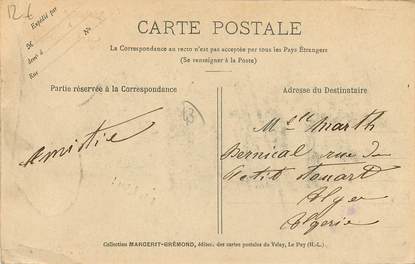 12 €
Expédié par
M
demt à
Nº
Rue
CARTE POSTALE
La Correspondance au recto n'est pas acceptée par tous les Pays Étrangers
(Se renseigner à la Poste)
Partie réservée à la Correspondance
Adresse du Destinataire
43
Amitié
Melle Marth
Bernical rue du
Petit Touart
Alger
Algerie
Collection MARGERIT-BRÉMOND, éditeur des cartes postales du Velay, Le Puy (H.-L.)